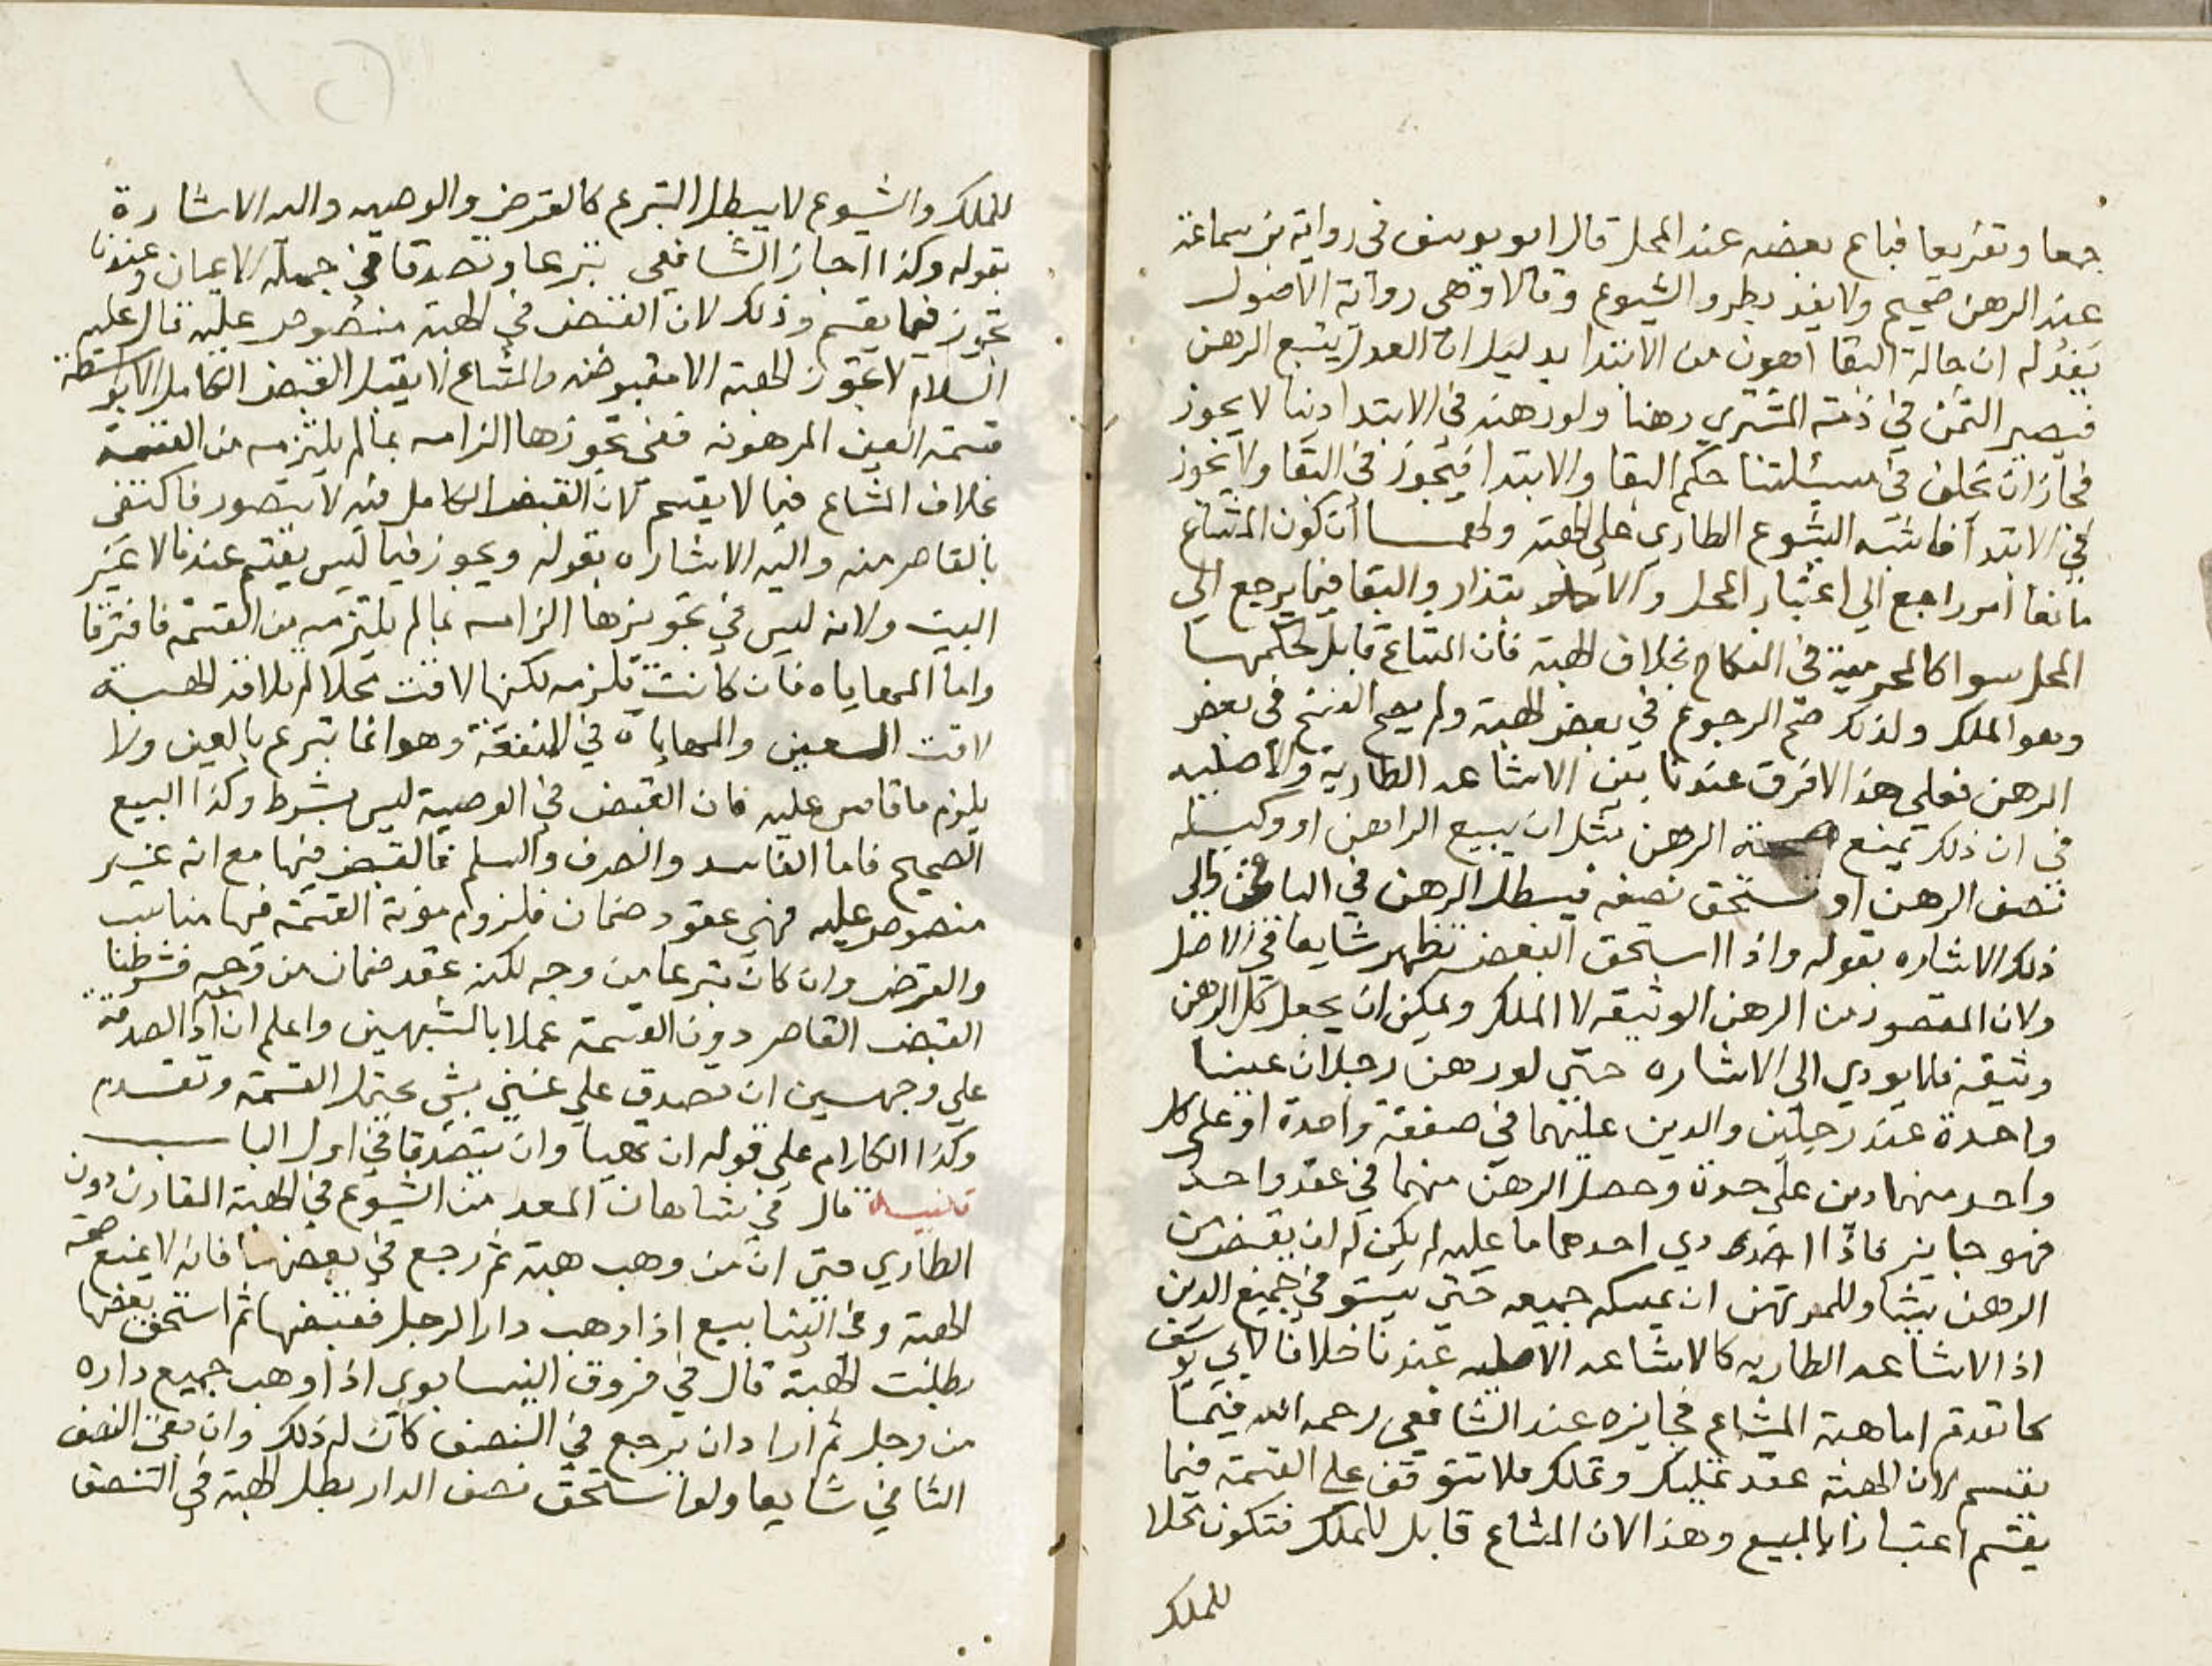 جمعا وتفريعا فباع بعضه عند المحل قال ابو يوسف في رواية بن سماعة
عند الرهن صحيح ولا يفد بطرو الشيوع وقالا وهي رواية الاصول
يفد له ان حالة البقا اهون من الابتدا بدليل ان العدل يبيع الرهن
فيصير الثمن في ذمة المشتري رهنا ولو رهنه في الابتدا دينا لا يجوز
فجاز ان يختلف في مسئلتنا حكم البقا والابتدا فيجوز في البقا ولا يجوز
في الابتدا فاشبه الشيوع الطاري على الهبة ولهما أن كون المشاع
مانعا امر راجع الي اعتبار المحل والابتدا والبقا فيما يرجع الي
المحل سوا كالمحرمية في النكاح بخلاف الهبة فان المشاع قابل لحكمها
وهو الملك ولذلك صح الرجوع في بعض الهبة ولم يصح الفسخ في بعض
الرهن فعلي هذا لا فرق عندنا بين الاشاعه الطارية والاصليه
في ان ذلك يمنع صحة الرهن مثل ان يبيع الراهن او وكيله
نصف الرهن او يستحق نصفه فيبطل الرهن في الباقي والي
ذلك الاشاره بقوله واذا استحق البعض تظهر شايعا في الاصل
ولان المقصود من الرهن الوثيقه لا الملك ويمكن ان يجعل كل الرهن
وثيقه فلا يودي الي الاشاره حتي لو رهن رجلان عينا
واحدة عند رجلين والدين عليهما في صفقة واحدة او على كل
واحد منهما دين علي حدة وحصل الرهن منهما في عقد واحد
فهو جايز فاذا ادي احدهما ما عليه لم يكن له ان يقبض من
الرهن شيا وللمرتهن ان يمسكه جميعه حتي يستوفي جميع الدين
اذ الاشاعه الطاريه كالاشاعه الاصليه عندنا خلافا لابي يوسف
كما تقدم اما هبة المشاع فجايزه عند الشافعي رحمه الله فيما
يقسم لان الهبة عقد تمليك وتملك فلا تتوقف على القسمة فيما
يقسم اعتبارا بالمبيع وهذا لان المشاع قابل للملك فتكون محلا
للملك
للملك والشيوع لا يبطل التبرع كالقرض والوصيه واليه الاشارة
بقوله وكذا اجاز الشافعي تبرعا وتصدقا في جملة الاعيان وعندنا
تجوز فيما يقسم وذلك لان القبض في الهبة منصوص عليه قال عليه
السلام لا تجوز الهبة الا مقبوضه والمشاع لا يقبل القبض الكامل الا بواسطة
قسمة العين المرهونه ففي تجوزها الزامه بما لم يلتزمه من القسمة
بخلاف المشاع فيما لا يقسم لان القبض الكامل فيه لا يتصور فاكتفي
بالقاصر منه واليه الاشاره بقوله ويجوز فيما ليس يقسم عندنا لا غير
البيت ولانه ليس في تجويزها الزامه بما لم يلتزمه من القسمة فافترقا
واما المهاياه فان كانت تلزمه لكنها لاقت محلا لم يلاقه الهبة
لاقت العين والمهاياة في المنفعة وهو انما تبرع بالعين ولا
يلزم ما قاس عليه فان القبض في الوصية ليس بشرط وكذا البيع
الصحيح فاما الفاسد والصرف والسلم فالقبض فيها مع انه غير
منصوص عليه فهي عقود ضمان فلزوم مؤنة القسمة فيها مناسب
والقرض وان كان تبرعا من وجه لكنه عقد ضمان من وجه فشرطنا
القبض القاصر دون القسمة عملا بالشبهين واعلم ان الصدقة
علي وجهين ان تصدق علي غني بشي يحتمل القسمة وتقدم
وكذا الكلام علي قوله ان تهبا وان يتصدقا في اول الباب
تنبيه قال في شاهان المفسد من الشيوع في الهبة المقارن دون
الطاري حتي ان من وهب هبة ثم رجع في بعضها فانه لا يمنع صحة
الهبة وفي الينابيع اذا وهب دارا لرجل فقبضها ثم استحق بعضها
بطلت الهبة قال في فروق النيسابوري اذا وهب جميع داره
من رجل ثم اراد ان يرجع في النصف كان له ذلك وان بقي النصف
الثاني شايعا ولو استحق نصف الدار بطل الهبة في النصف